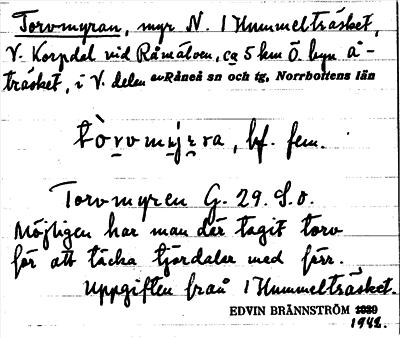 Torvmyran, myr N. 1 Hummelträsket,
V. Korpdal vid Råmåloen, ca 5 km Ö. byn Å-
träsket, i V. delen av Råneå sn och tg, Norrbottens län
bf. fem.
Torvmyren G. 29. S.o.
Möjligen har man där tagit torv
för att täcka tjärdalar med förr.
Uppgiften från 1 Hummelträsket.
EDVIN BRÄNNSTRÖM 1939
1942.